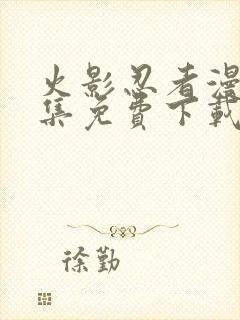 火影忍者漫
集免費下載
徐勤